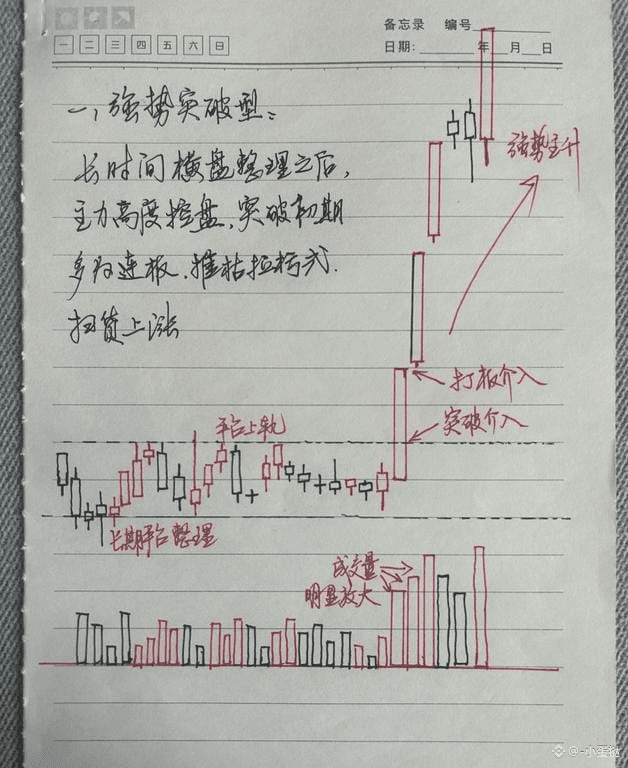 备忘录 编号
一 二 三 四 五 六 日
日期: 年 月 日
一，强势突破型：
长时间横盘整理之后，
主力高度控盘，突破初期
多为连板，摧枯拉朽式
扫货上涨
强势主升
打板介入
突破介入
平台上轨
长期平台整理
成交量
明显放大
@-小蛋挞